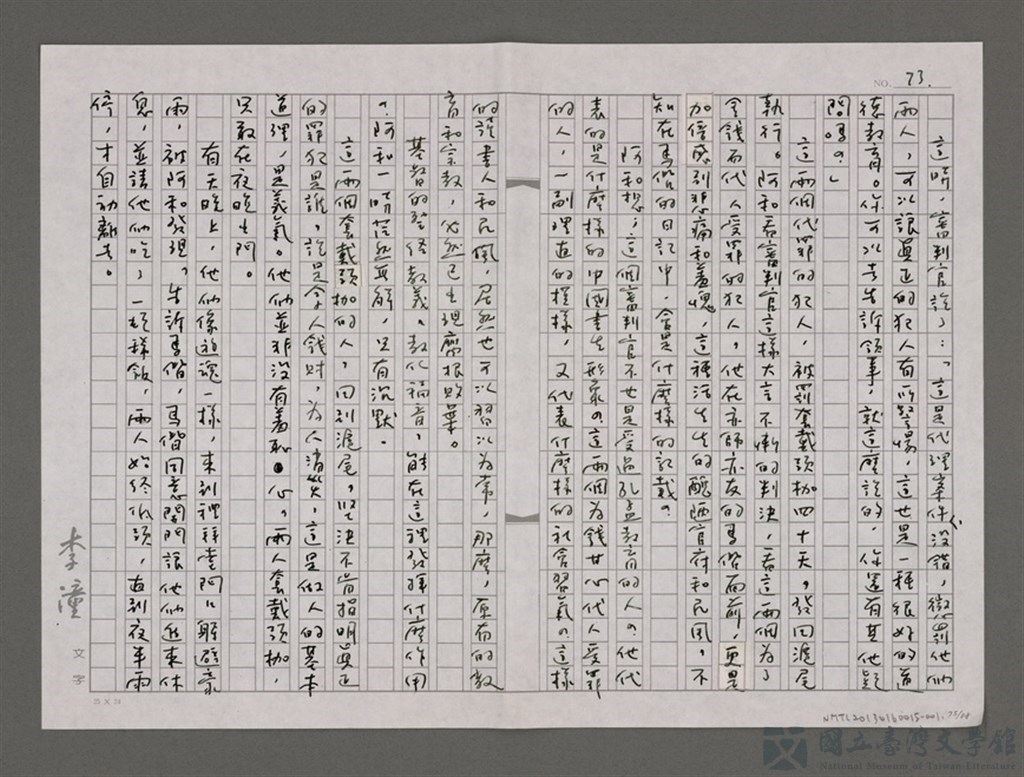 NO. 73.
這時，審判官說了：「這是代理案件沒錯，懲罰他們
兩人，可以讓真正的犯人有所警惕，這也是一種很好的道
德教育。你可以告訴領事，就這麼說的，你還有其他疑
問嗎？」
這兩個代罪的犯人，被罰套戴頭枷四十天，發回滬尾
執行。阿和看審判官這樣大言不慚的判決，看這兩個為了
金錢而代人受罪的犯人，他在亦師亦友的馬偕面前，更是
加倍感到悲痛和羞愧，這種活生生的醜陋官府和民風，不
知在馬偕的日記中，會是什麼樣的記載？
阿和想，這個審判官不也是受過孔孟教育的人？他代
表的是什麼樣的中國書生形象？這兩個為錢甘心代人受罪
的人，一副理直的模樣，又代表什麼樣的社會習氣？這樣
的讀書人和民風，居然也可以習以為常，那麼，原有的教
育和宗教，必然已出現腐根敗葉。
基督的聖經教義、教化福音，能在這裡發揮什麼作用
？阿和一時茫然無解，只有沉默。
這兩個套戴頭枷的人，回到滬尾，堅決不肯指明真正
的罪犯是誰，說是拿人錢財，為人消災，這是做人的基本
道理，是義氣。他們並非沒有羞恥心，兩人套戴頭枷，
只敢在夜晚出門。
有天晚上，他們像遊魂一樣，來到禮拜堂門口躲避豪
雨，被阿和發現，告訴馬偕，馬偕同意開門讓他們進來休
息，並請他們吃了一頓稀飯，兩人始終低頭，直到夜半雨
停，才自動離去。
李潼 文字
25 X 24
NMTL20130160015-001.
國立臺灣文學館
National Museum of Taiwan Literature